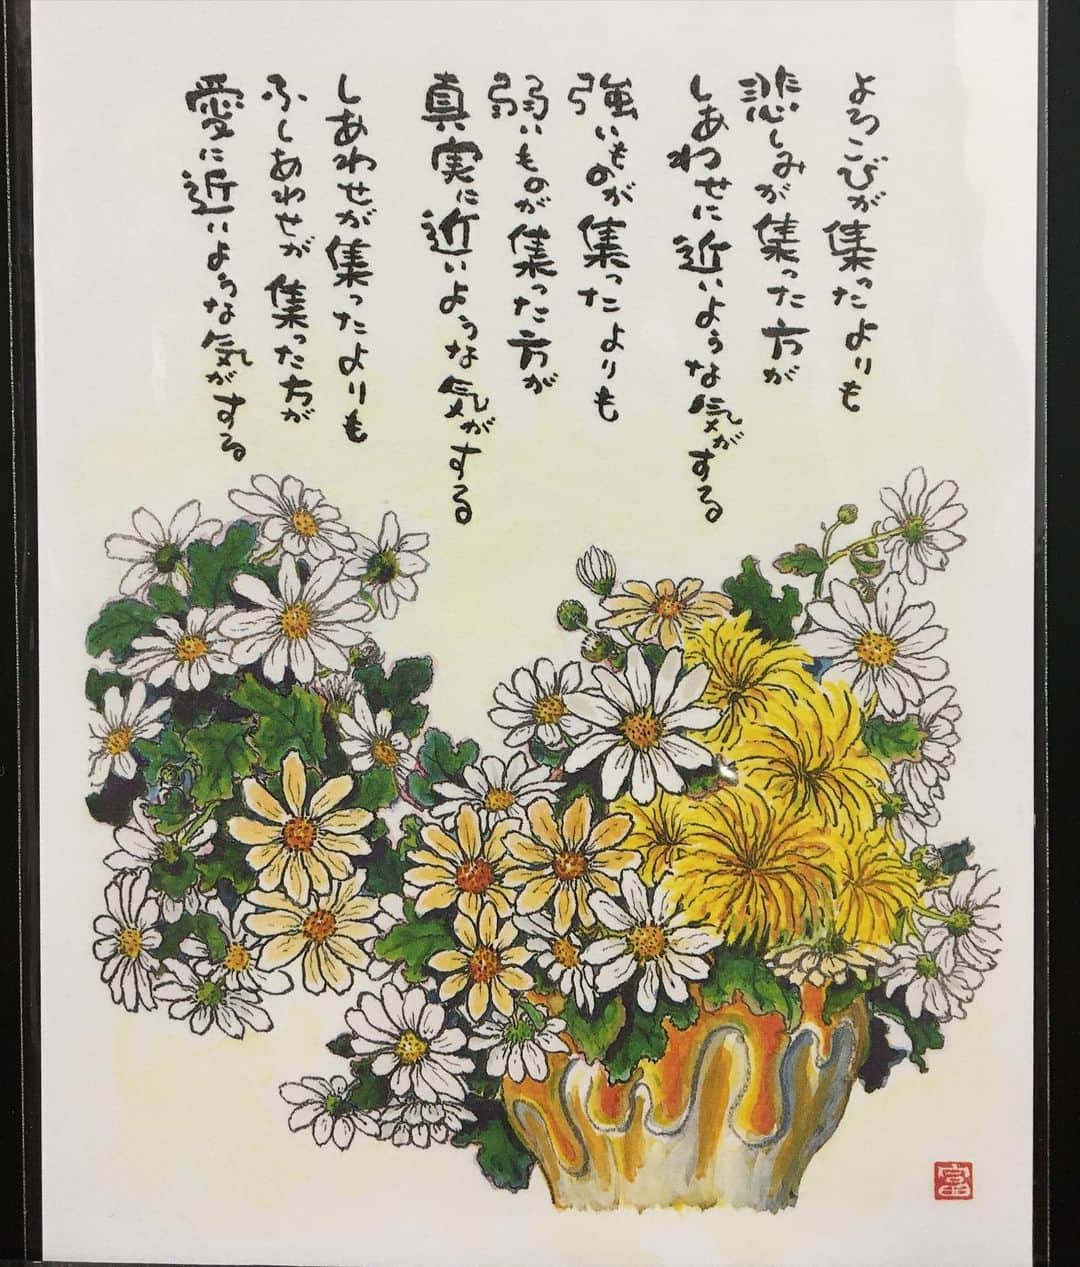 よろこびが集ったよりも
悲しみが集った方が
しあわせに近いような気がする
強いものが集ったよりも
弱いものが集った方が
真実に近いような気がする
しあわせが集ったよりも
ふしあわせが集った方が
愛に近いような気がする
富